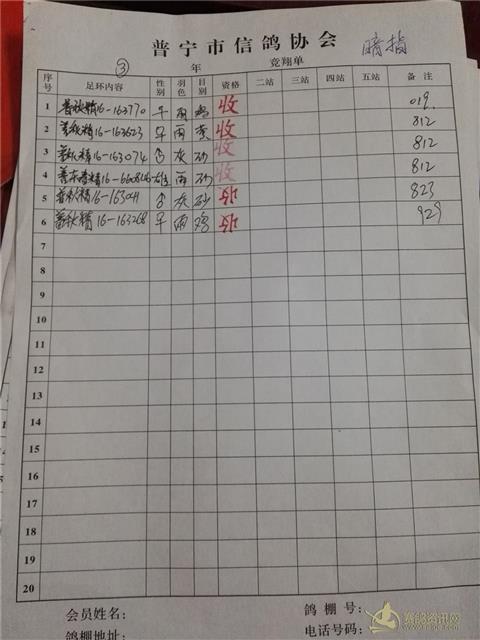 普宁市信鸽协会 暗指
③ 年 竞翔单
序号 足环内容 性别 羽色 目别 资格 二站 三站 四站 五站 备注
1 普秋精16-163770 平 雨 鸡 收 019.
2 普秋精16-163623 平 雨 黄 收 812
3 普秋精16-163074 灰 砂 收 812
4 雨 砂 收 812
5 普秋精 灰 砂 收 823
6 普秋精16-163268 平 雨 鸡 收 929
7
8
9
10
11
12
13
14
15
16
17
18
19
20
会员姓名: 鸽棚号:
鸽棚地址: 电话号码:
赛鸽资讯网